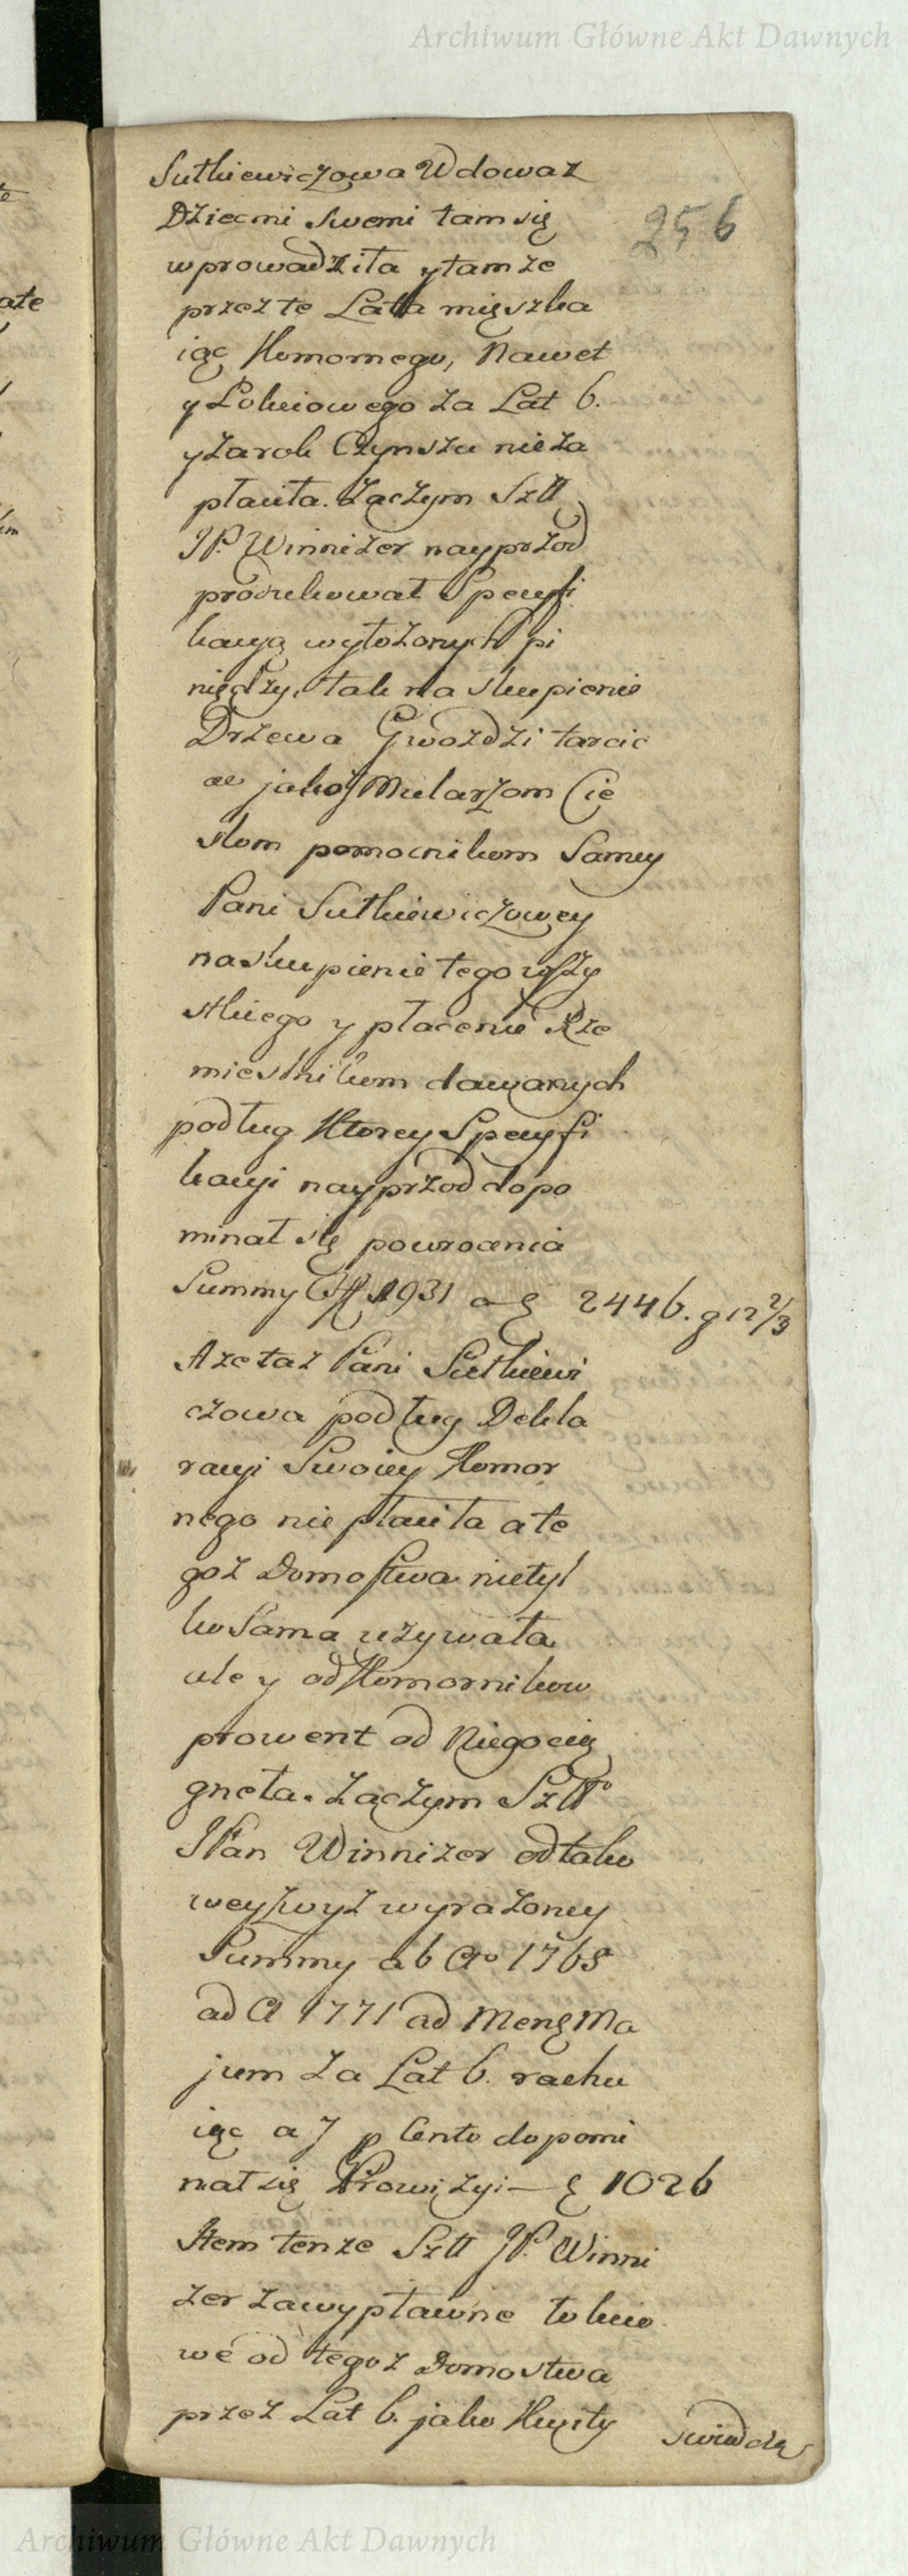 Archiwum Główne Akt Dawnych
256
Sutkiewiczowa Wdowa z
Dziecmi Swemi tam się
wprowadziła y tamże
przez te Latta mięszka
iąc Komornego, Nawet
y Łokciowego za Lat 6.
y za rok Czynszu nieza
płaciła. Zaczym Sztt
JP. Winnizer nayprzod
produkował Specyfi
kacyą wyłożonych pi
niędzy, tak na skupienie
Drzewa Gwozdzi tarcic
jako y Mularzom Cie
slom pomocnikom Samey
Pani Sutkiewiczowey
na skupienie tego wszy
stkiego y płacenie Rze
mieslnikom dawanych
podług Ktorey Specyfi
kacyi nayprzod dopo
minał się powrocenia
Summy # 1931 a 2446. g 12 2/3
A że taż Pani Sutkiewi
czowa podług Dekla
racyi Swoiey Komor
nego nie płaciła a te
goż Domostwa nietyl
ko Sama używała
ale y od Komornikow
prowent od Niego cią
gneła. Zaczym Sztt
JPan Winnizer od tako
wey zwyż wyrażoney
Summy ab Ao 1765
ad A 1771 ad Mens Ma
jum za Lat 6. rachu
iąc a 7 p Cento dopomi
nał się Prowizyi — 1026
Item tenże Sztt JP. Winni
zer za wypłacone łokcio
we od tegoż Domostwa
przez Lat 6. jako Kwity
swiadczą
Archiwum Główne Akt Dawnych